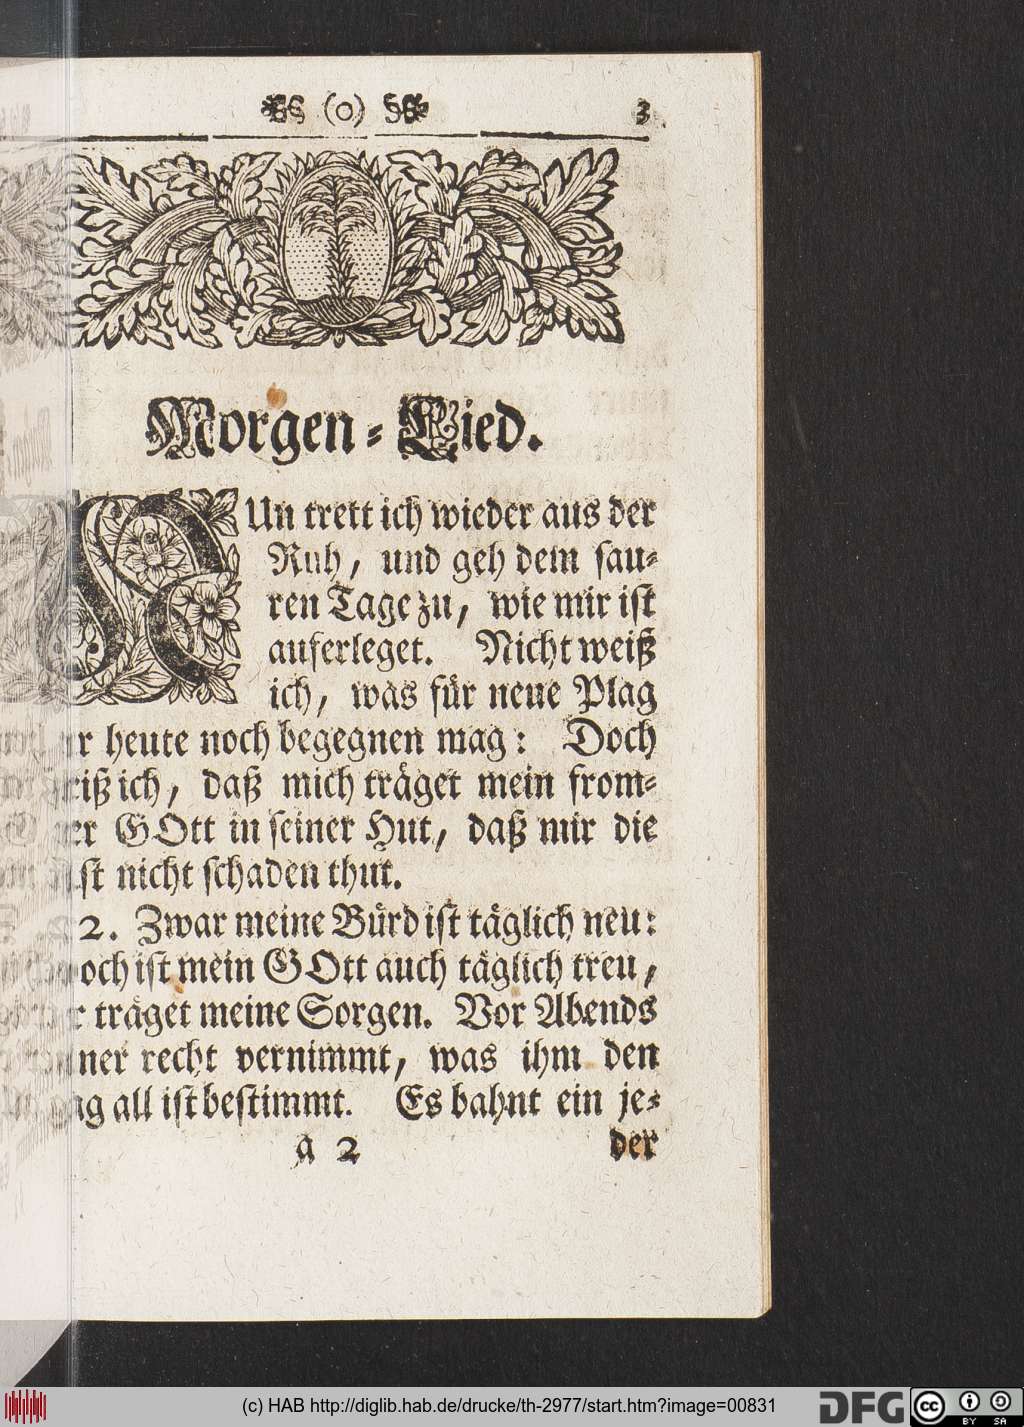 (o) 3
Morgen-Lied.
NUn trett ich wieder aus der
Ruh, und geh dem sau-
ren Tage zu, wie mir ist
auferleget. Nicht weiß
ich, was für neue Plag
heute noch begegnen mag: Doch
ich, daß mich träget mein from-
GOtt in seiner Hut, daß mir die
nicht schaden thut.
2. Zwar meine Bürd ist täglich neu:
ist mein GOtt auch täglich treu,
träget meine Sorgen. Vor Abends
recht vernimmt, was ihm den
all ist bestimmt. Es bahnt ein je-
a 2 der
(c) HAB http://diglib.hab.de/drucke/th-2977/start.htm?image=00831
DFG
cc BY SA